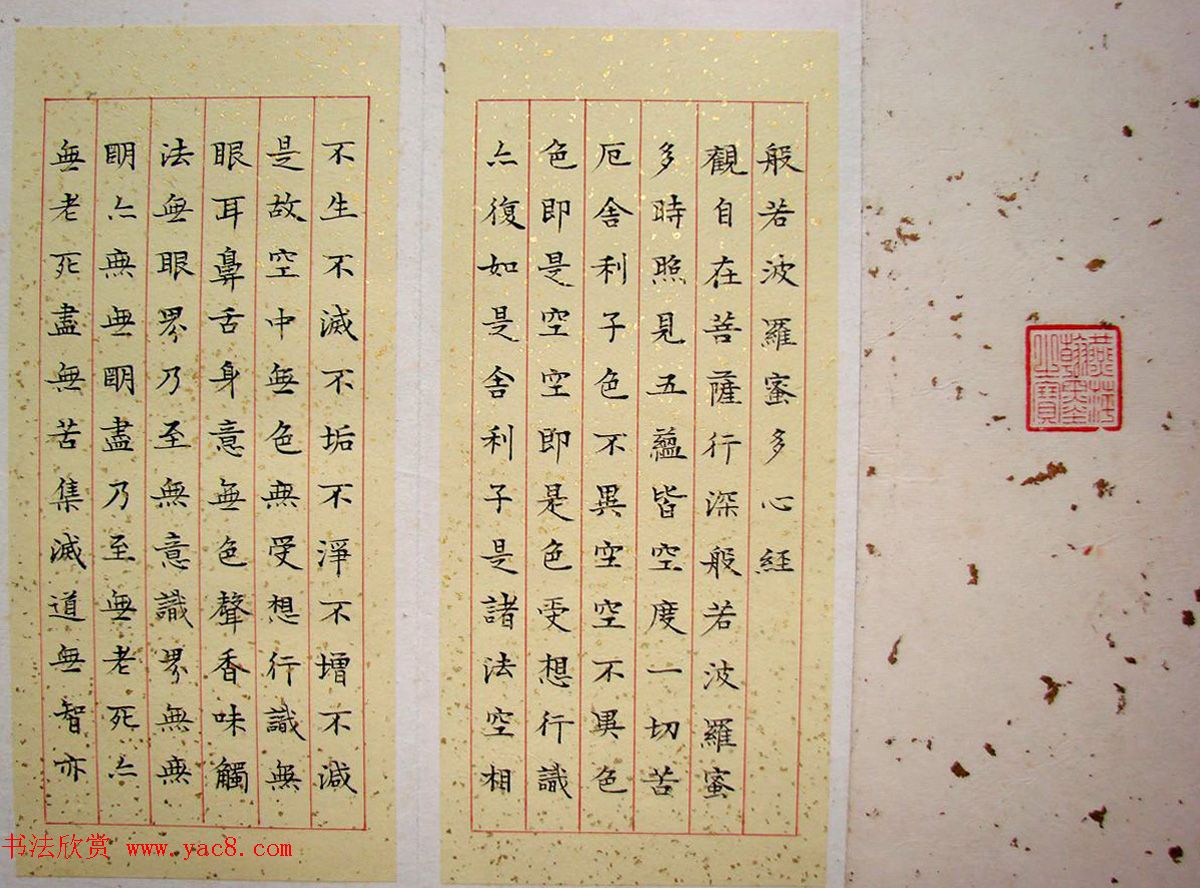 般若波羅蜜多心経
觀自在菩薩行深般若波羅蜜
多時照見五蘊皆空度一切苦
厄舍利子色不異空空不異色
色即是空空即是色受想行識
亦復如是舍利子是諸法空相
不生不滅不垢不淨不增不減
是故空中無色無受想行識無
眼耳鼻舌身意無色聲香味觸
法無眼界乃至無意識界無無
明亦無無明盡乃至無老死亦
無老死盡無苦集滅道無智亦
书法欣赏 www.yac8.com